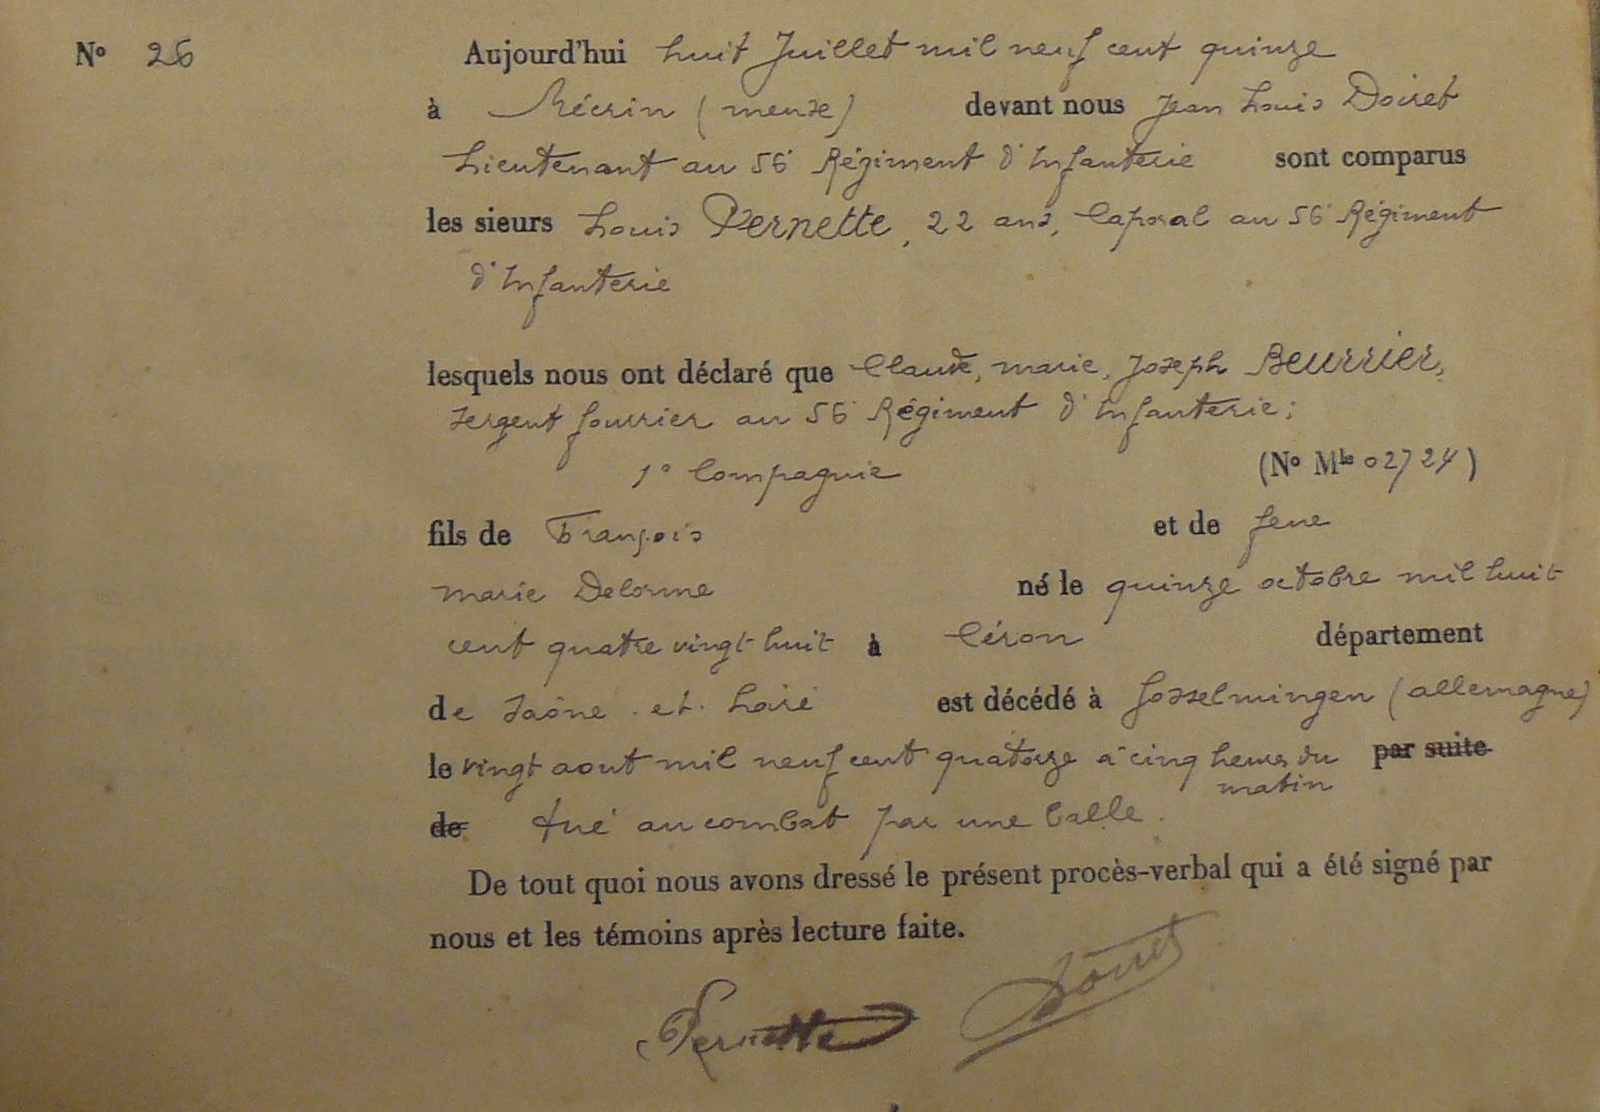 N° 26
Aujourd'hui huit Juillet mil neuf cent quinze
à Mécrin (meuse) devant nous Jean Louis Doiret
Lieutenant au 56e Régiment d'Infanterie sont comparus
les sieurs Louis Pernette, 22 ans, Caporal au 56e Régiment
d'Infanterie
lesquels nous ont déclaré que Claude, marie, Joseph Beurrier,
sergent fourrier au 56e Régiment d'Infanterie;
1e Compagnie (N° Mle 02724)
fils de François et de feue
marie Delorme né le quinze octobre mil huit
cent quatre vingt huit à Céron département
de Saône et Loire est décédé à Gosselmingen (allemagne)
le vingt aout mil neuf cent quatorze à cinq heures du par suite
matin
de tué au combat par une balle.
De tout quoi nous avons dressé le présent procès-verbal qui a été signé par
nous et les témoins après lecture faite.
Pernette Doiret